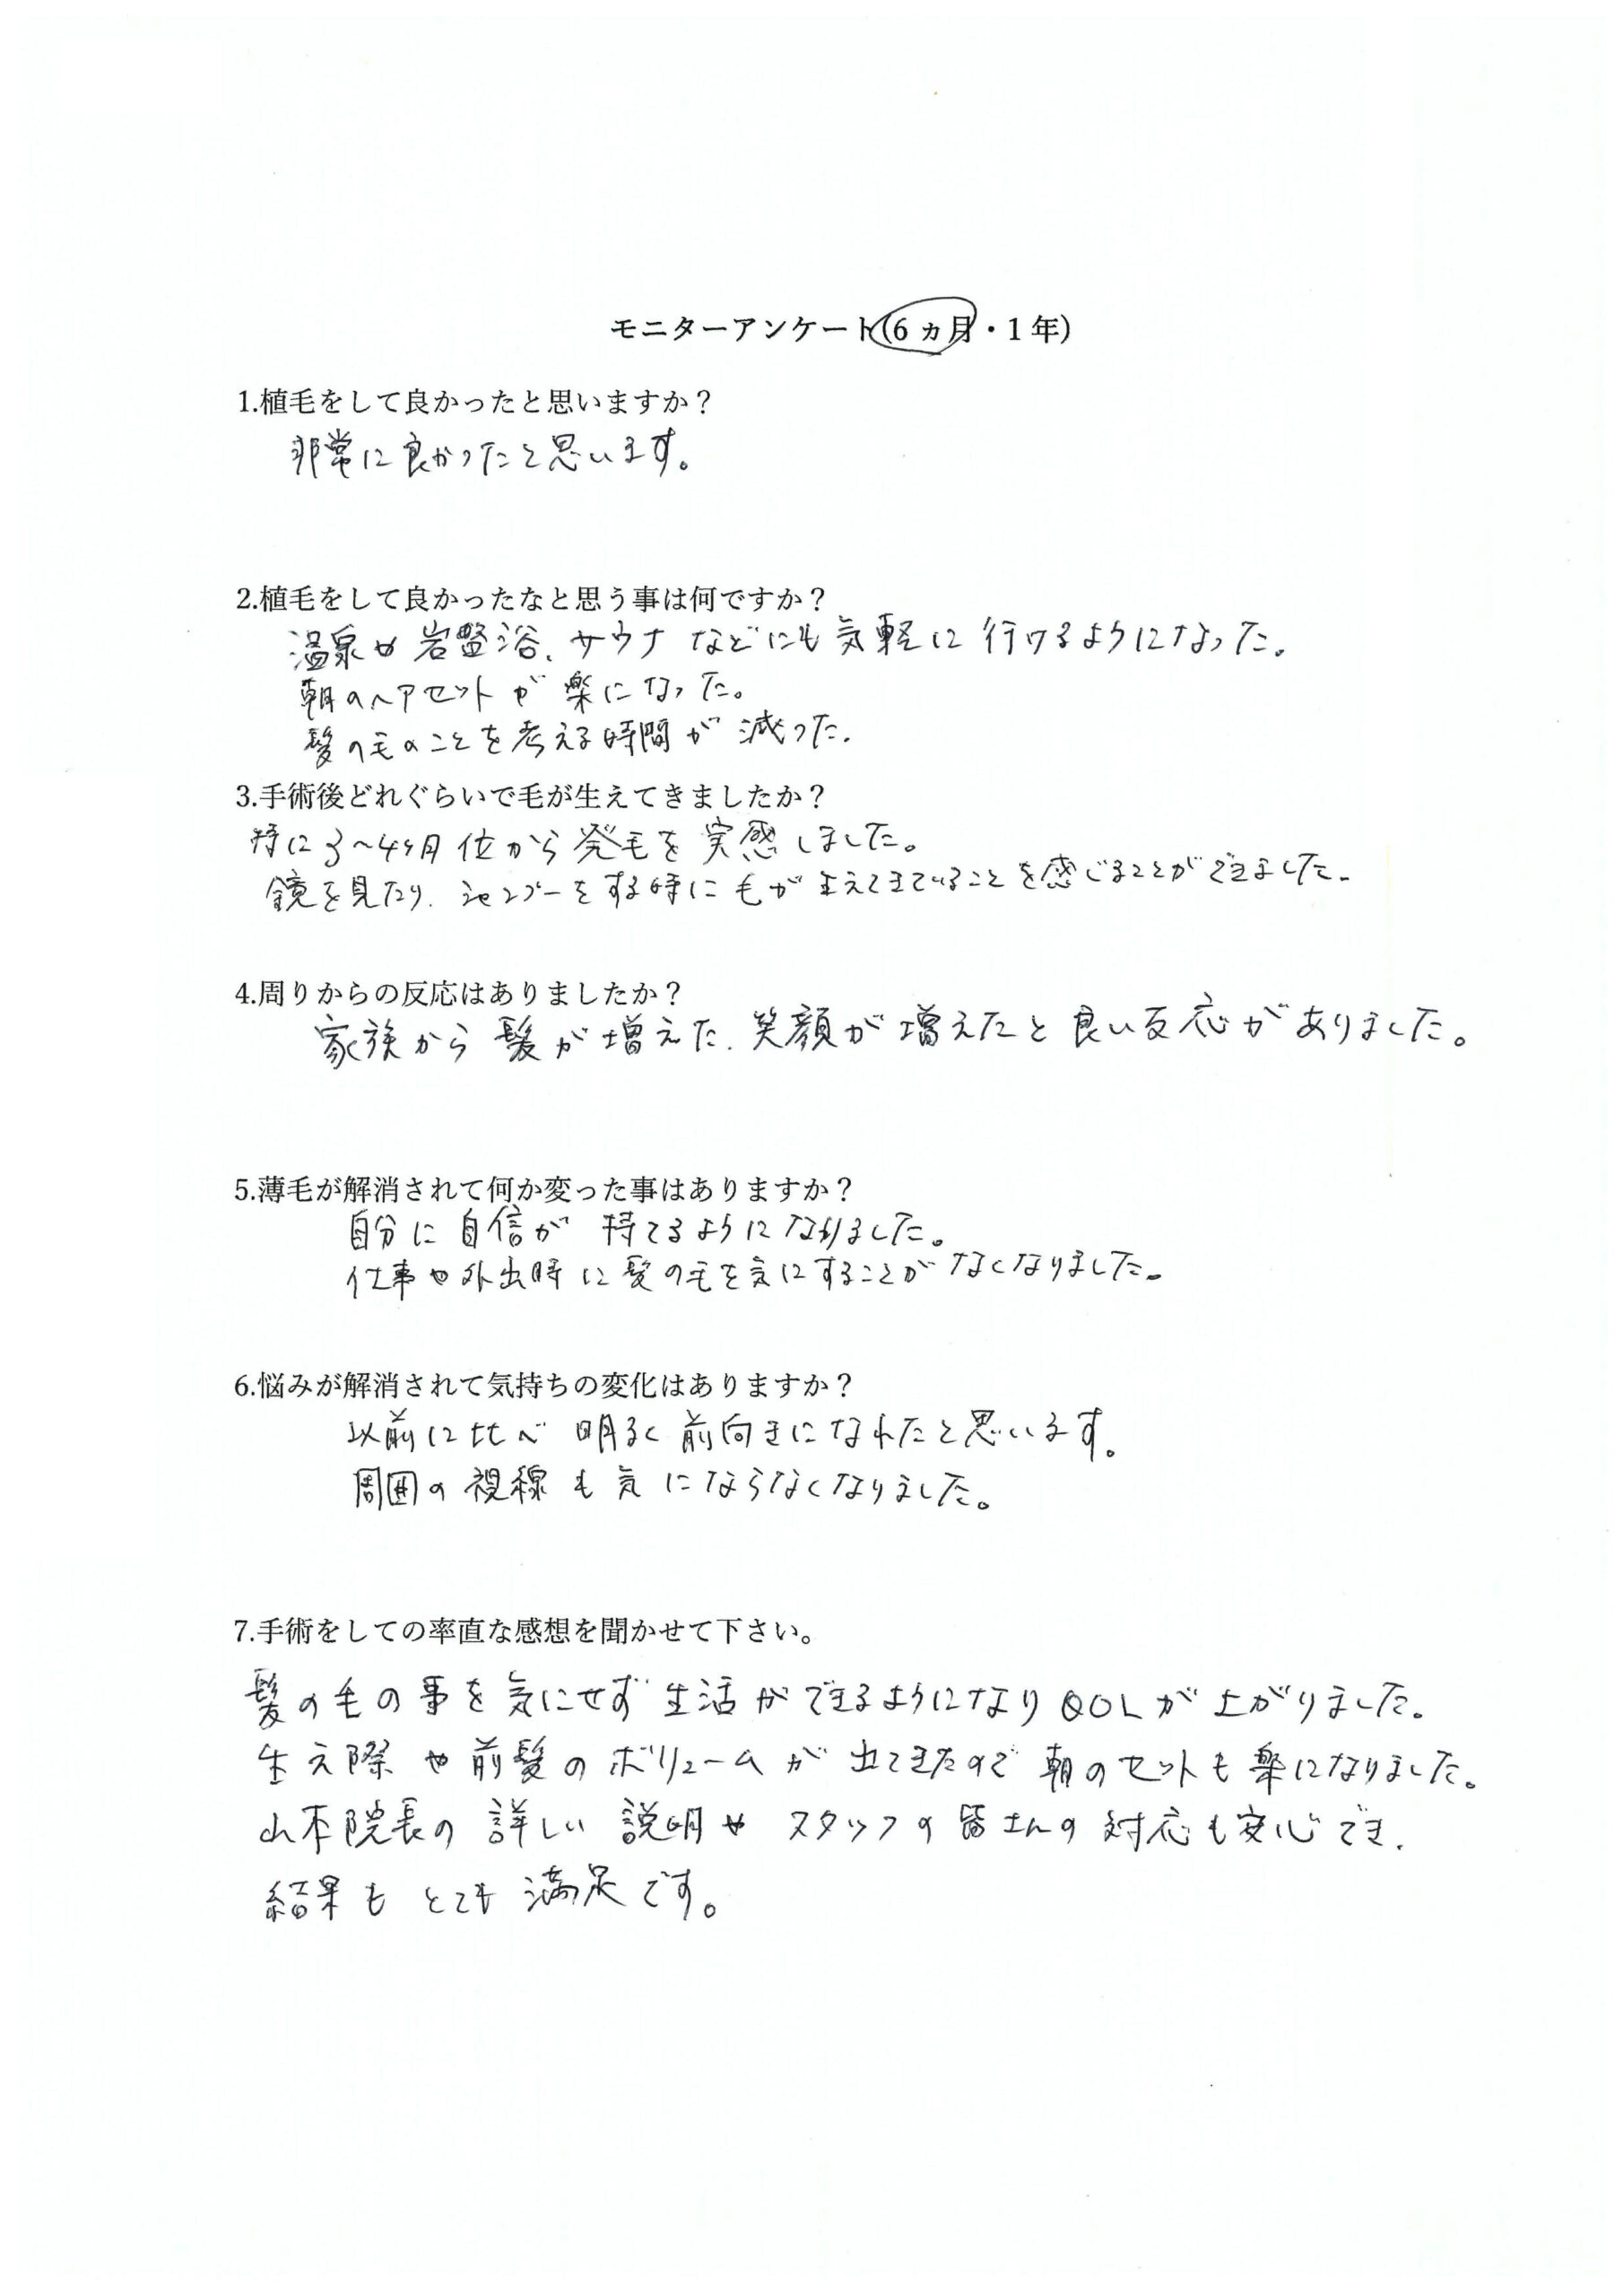 モニターアンケート(6ヵ月・1年)
1.植毛をして良かったと思いますか?
非常に良かったと思います。
2.植毛をして良かったなと思う事は何ですか?
温泉や岩盤浴、サウナなどにも気軽に行けるようになった。
朝のヘアセットが楽になった。
髪の毛のことを考える時間が減った。
3.手術後どれぐらいで毛が生えてきましたか?
特に3~4ヶ月位から発毛を実感しました。
鏡を見たり、シャンプーをする時に毛が生えてきていることを感じることができました。
4.周りからの反応はありましたか?
家族から髪が増えた、笑顔が増えたと良い反応がありました。
5.薄毛が解消されて何か変った事はありますか?
自分に自信が持てるようになりました。
仕事や外出時に髪の毛を気にすることがなくなりました。
6.悩みが解消されて気持ちの変化はありますか?
以前に比べ明るく前向きになれたと思います。
周囲の視線も気にならなくなりました。
7.手術をしての率直な感想を聞かせて下さい。
髪の毛の事を気にせず生活ができるようになりQOLが上がりました。
生え際や前髪のボリュームが出てきたので朝のセットも楽になりました。
山本院長の詳しい説明やスタッフの皆さんの対応も安心でき、
結果もとても満足です。